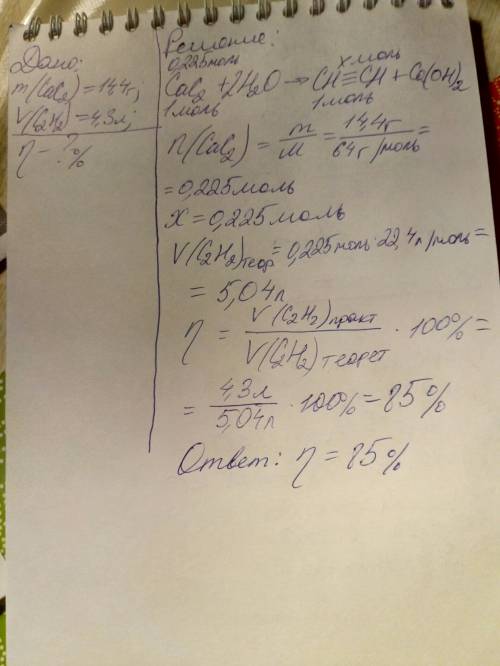 Дано:
m(CaC₂) = 14,4г;
V(C₂H₂) = 4,3л;
η – ?%
Решение:
0,225моль x моль
CaC₂ + 2H₂O → CH≡CH + Ca(OH)₂
1моль 1моль
n(CaC₂) = m/M = 14,4г/64г/моль =
= 0,225моль
x = 0,225моль
V(C₂H₂)теор = 0,225моль · 22,4л/моль =
= 5,04л
η = V(C₂H₂)практ/V(C₂H₂)теорет · 100% =
= 4,3л/5,04л · 100% = 85%
Ответ: η = 85%